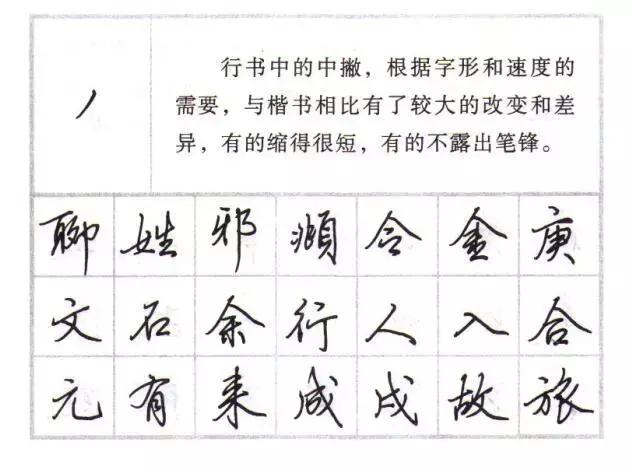 行书中的中撇，根据字形和速度的
需要，与楷书相比有了较大的改变和差
异，有的缩得很短，有的不露出笔锋。
聊 姓 邪 金 庚
文 石 余 行 人 入 合
元 有 来 成 戌 故 旅